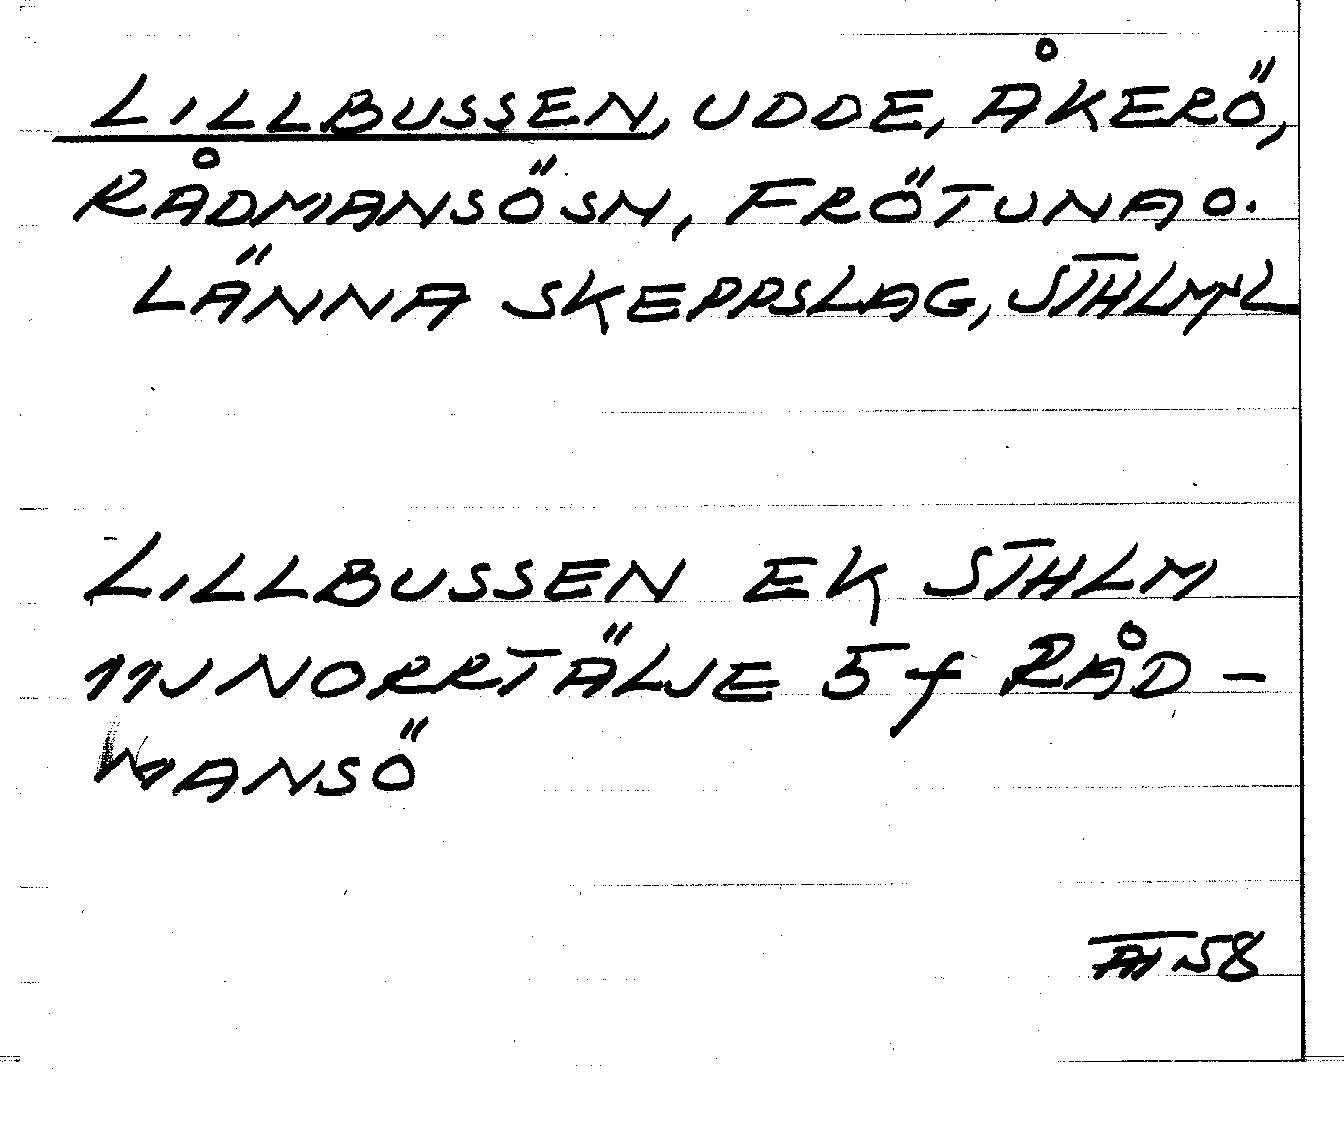 LILLBUSSEN, UDDE, ÅKERÖ,
RÅDMANSÖ SN, FRÖTUNA O.
LÄNNA SKEPPSLAG, STHLMS L
LILLBUSSEN EK STHLM
11J NORRTÄLJE 5 f RÅD-
MANSÖ
58